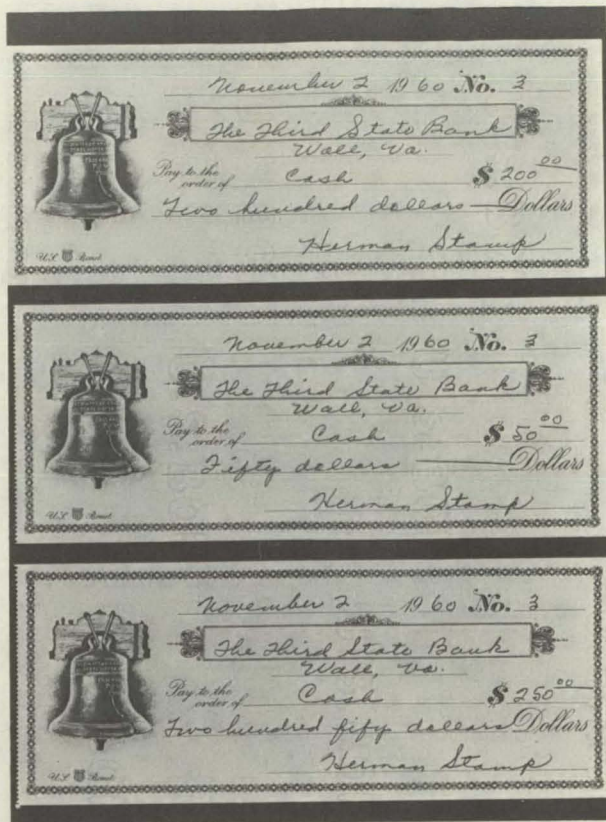 November 2 1960 No. 3
The Third State Bank
Wall, Va.
Pay to the order of Cash $ 200 00
Two hundred dollars — Dollars
Herman Stamp
November 2 1960 No. 3
The Third State Bank
Wall, Va.
Pay to the order of Cash $ 50 00
Fifty dollars — Dollars
Herman Stamp
November 2 1960 No. 3
The Third State Bank
Wall, Va.
Pay to the order of Cash $ 250 00
Two hundred fifty dollars Dollars
Herman Stamp